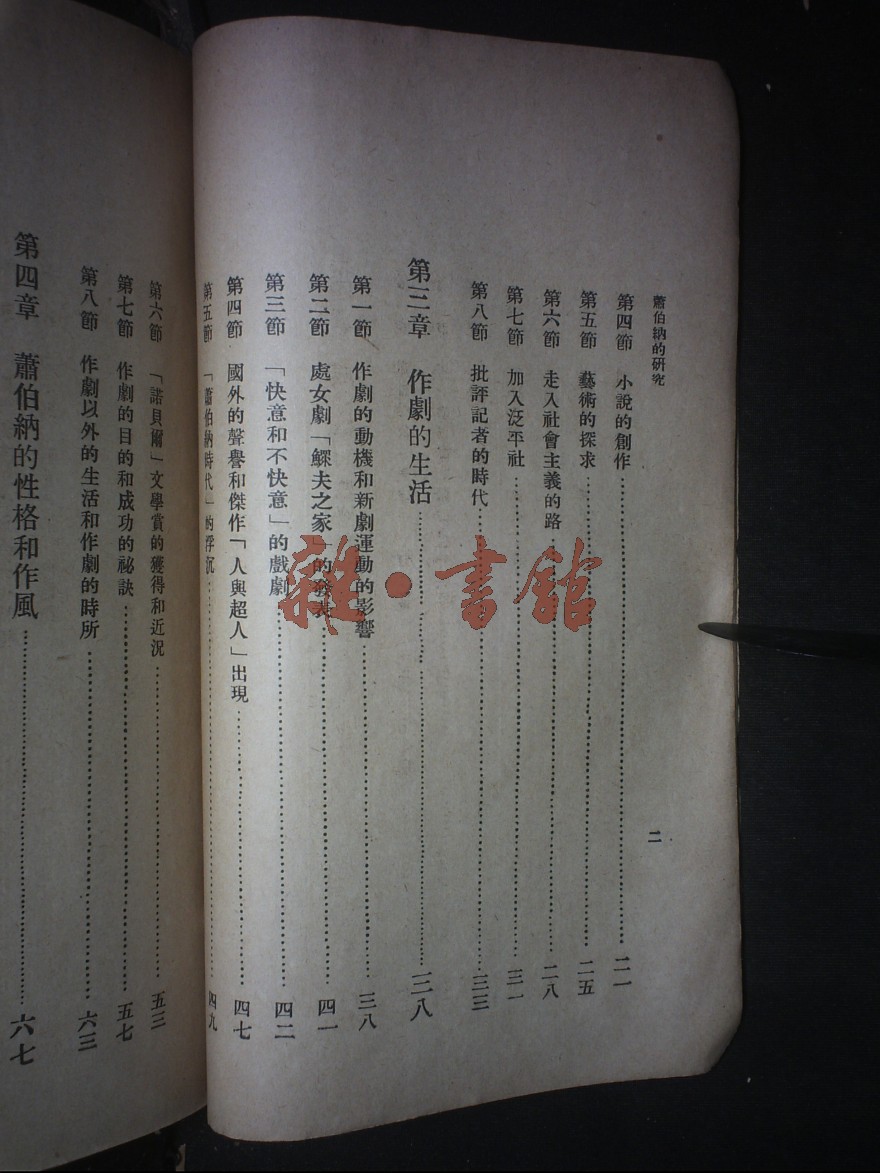 蕭伯納的研究
二
第四節 小說的創作 二一
第五節 藝術的探求 二五
第六節 走入社會主義的路 二八
第七節 加入泛平社 三一
第八節 批評記者的時代 三三
第三章 作劇的生活 三八
第一節 作劇的動機和新劇運動的影響 三八
第二節 處女劇「鰥夫之家」的發表 四一
第三節 「快意和不快意」的戲劇 四二
第四節 國外的聲譽和傑作「人與超人」出現 四七
第五節 「蕭伯納時代」的浮沉 四九
第六節 「諾貝爾」文學賞的獲得和近況 五三
第七節 作劇的目的和成功的祕訣 五七
第八節 作劇以外的生活和作劇的時所 六三
第四章 蕭伯納的性格和作風 六七
雜·書館